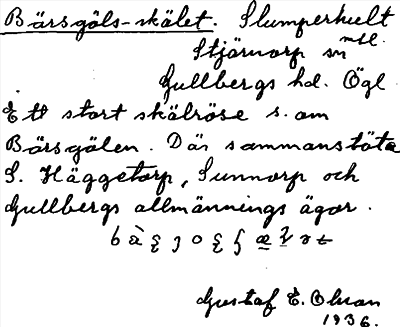 Bärsgöls-skälet. Slumperhult
Stjärnorp sn
Gullbergs hd. Ögl.
Ett stort skälröse s. om
Bärsgölen. Där sammanstöta
S. Häggetorp, Sunnorp och
Gullbergs allmännings ägor.
Gustaf E. Olsson
1936.